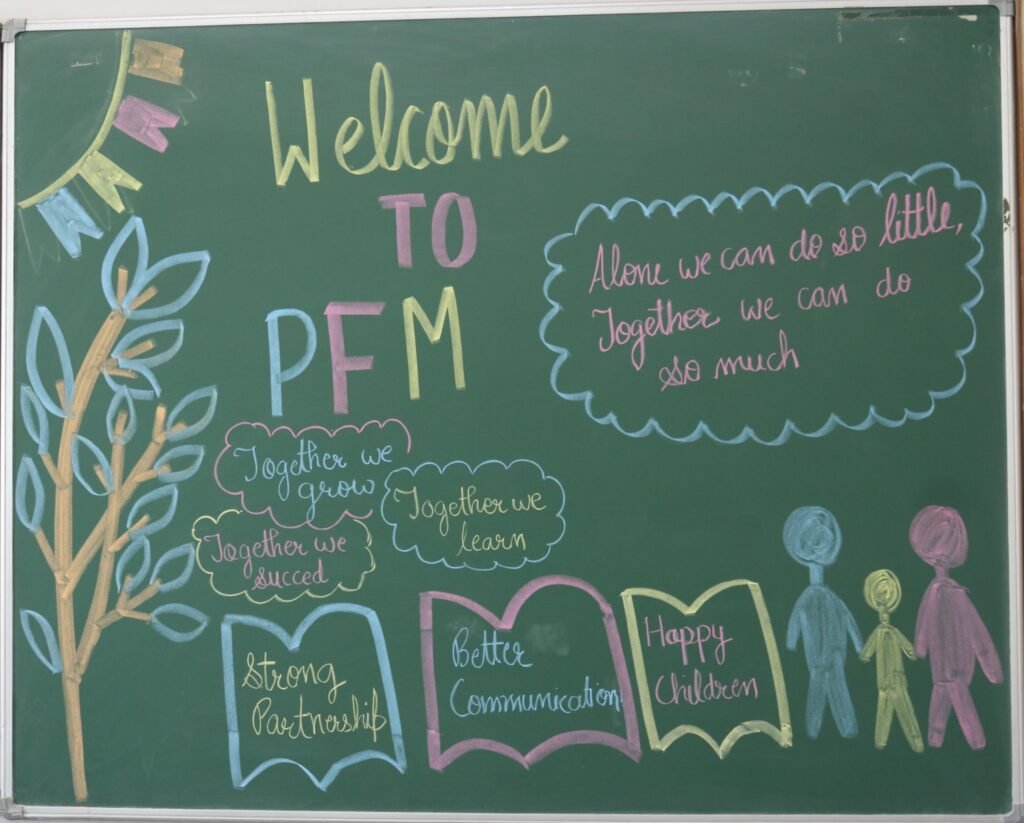 Welcome
TO
PFM
Alone we can do so little,
Together we can do
so much
Together we
grow
Together we
learn
Together we
succed
Strong
Partnership
Better
Communication
Happy
Children